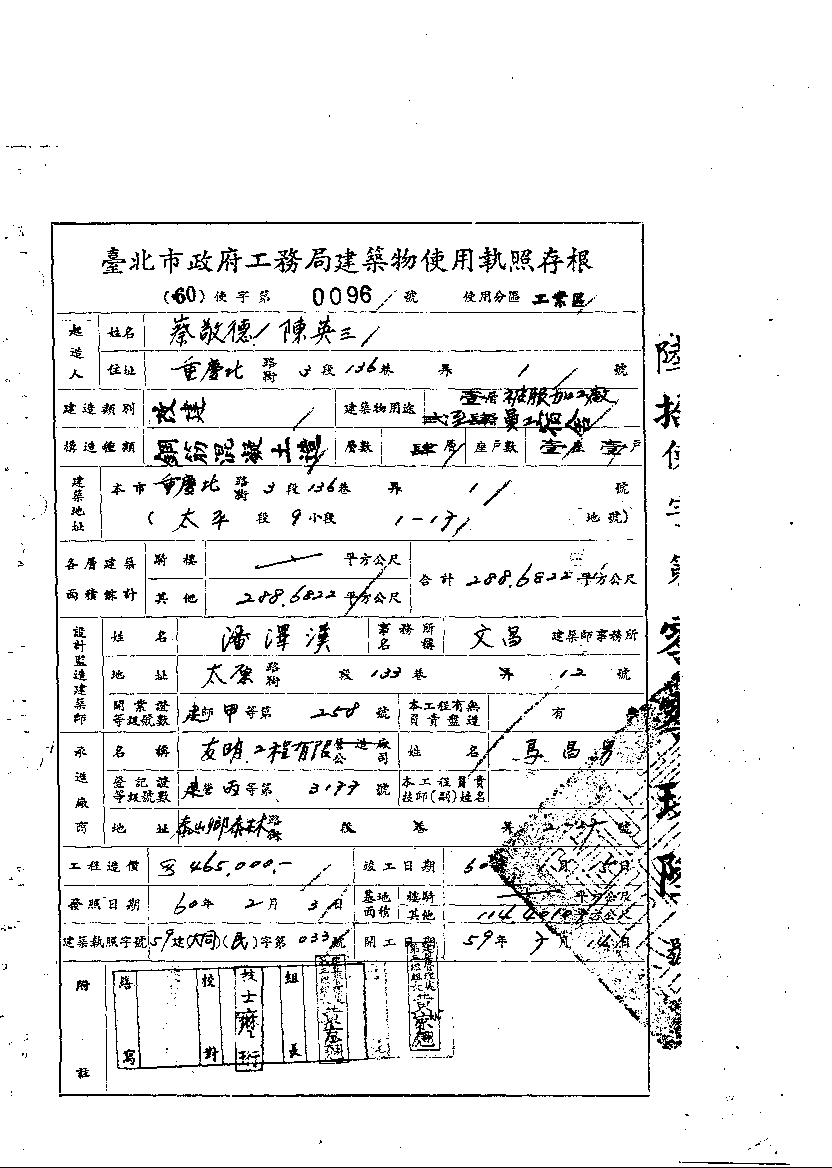 臺北市政府工務局建築物使用執照存根
(60)使字第 0096 號 使用分區 工業區
起造人 姓名 蔡敬德 陳英三
住址 重慶北路街 3段 136巷 弄 1 號
建造類別 改建 建築物用途 壹層被服加工廠 員工宿舍
構造種類 鋼筋混凝土造 層數 肆層 座戶數 壹座壹戶
建築地址 本市 重慶北路街 3段 136巷 弄 1 號
(太平段 9小段 1-17 地號)
各層建築面積總計 騎樓 平方公尺 合計 288.6822 平方公尺
其他 288.6822 平方公尺
設計監造建築師 姓名 潘澤漢 事務所名稱 文昌 建築師事務所
地址 太原路街 段 133巷 弄 12 號
開業證等級號數 建師甲等第 258 號 本工程有無負責監造 有
承造廠商 名稱 友明工程有限營造廠公司 姓名 馬昌男
登記證等級號數 建營丙等第 3177 號 本工程負責技師(副)姓名
地址 泰山鄉泰林路街 段 巷 弄 號
工程造價 465,000.- 竣工日期 60 1月 15日
發照日期 60年 2月 3日 基地面積 騎樓 平方公尺
其他 平方公尺
建築執照字號 59建(大同)(民)字第 033 號 開工日期 59年 月 日
附註 繕寫 校對 技士 組長
陸拾使字第零零玖陸號